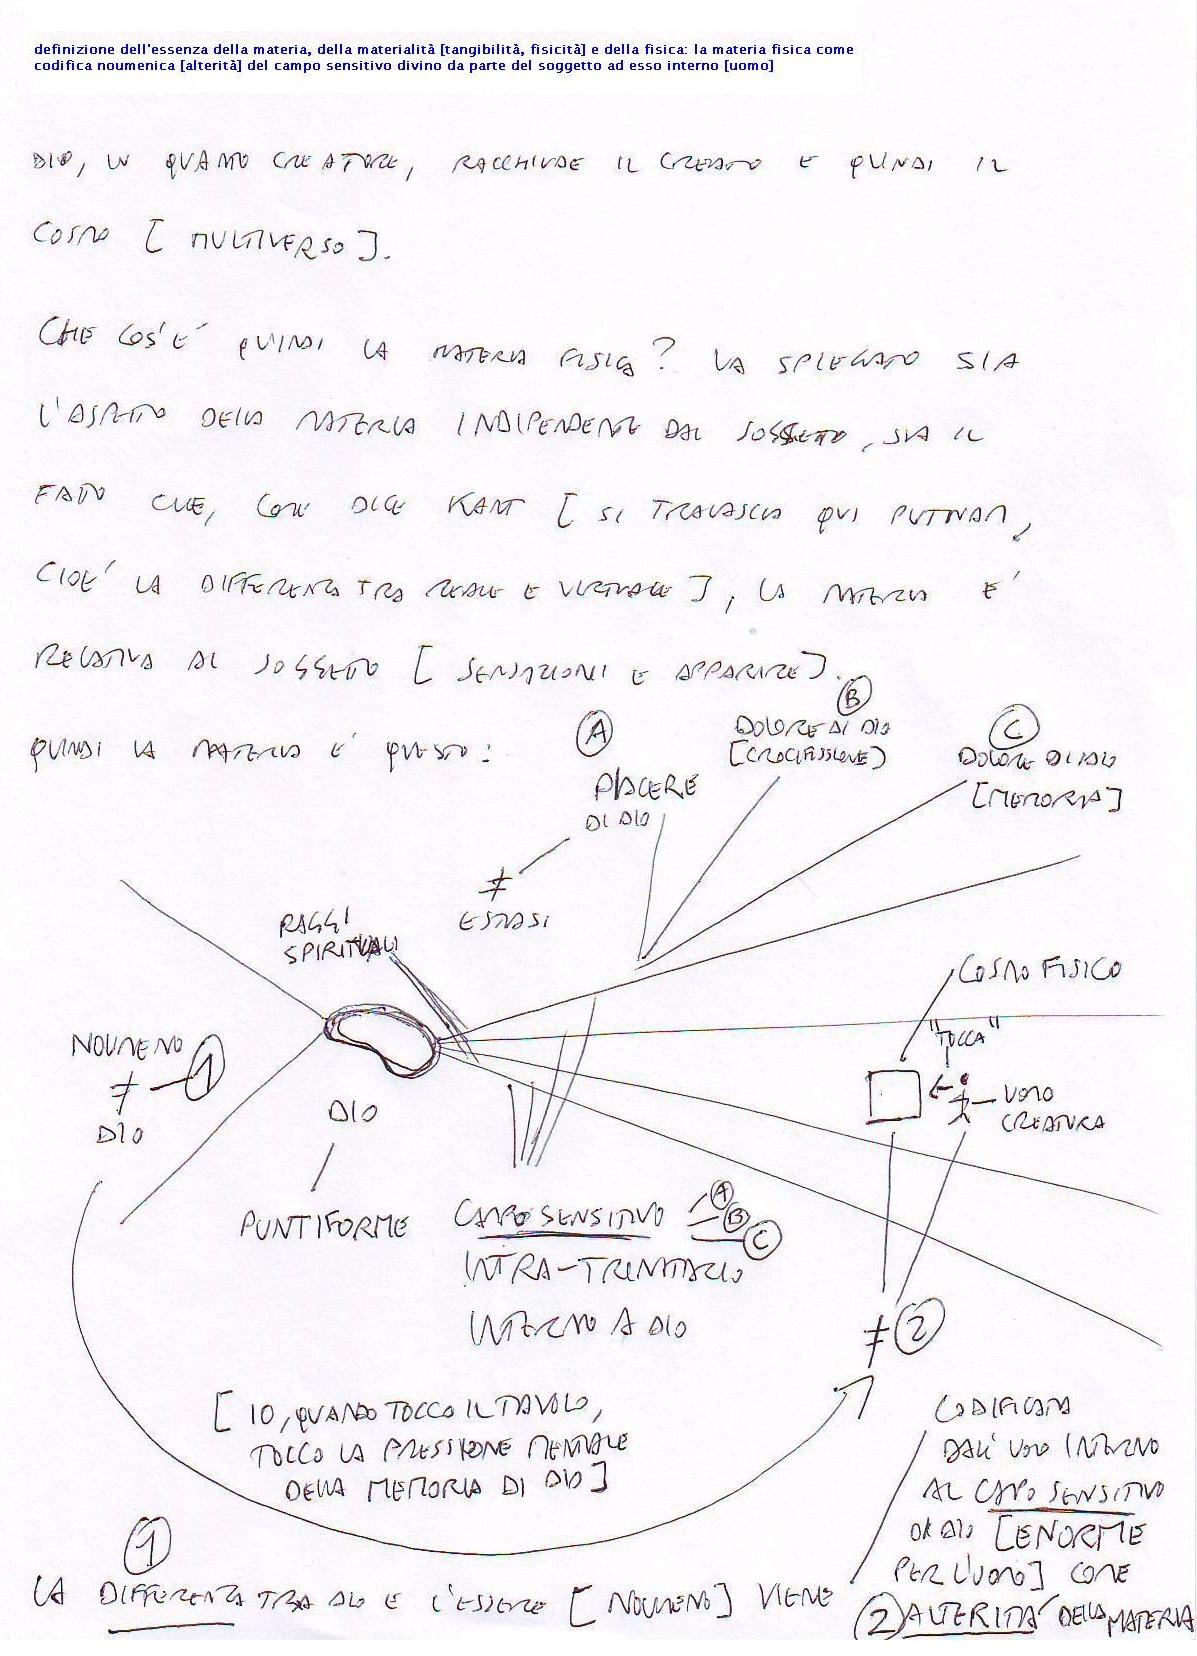 definizione dell'essenza della materia, della materialità [tangibilità, fisicità] e della fisica: la materia fisica come
codifica noumenica [alterità] del campo sensitivo divino da parte del soggetto ad esso interno [uomo]
DIO, IN QUANTO CREATORE, RACCHIUDE IL CREATO E QUINDI IL
COSMO [MULTIVERSO].
CHE COS'E' QUINDI LA MATERIA FISICA? VA SPIEGATO SIA
L'ASPETTO DELLA MATERIA INDIPENDENTE DAL SOGGETTO, SIA IL
FATTO CHE, COME DICE KANT [SI TRALASCIA QUI PUTNAM,
CIOE' LA DIFFERENZA TRA REALE E VIRTUALE], LA MATERIA E'
RELATIVA AL SOGGETTO [SENSAZIONI E APPARIRE].
QUINDI LA MATERIA E' QUESTO:
A
PIACERE
DI DIO
≠
ESTASI
B
DOLORE DI DIO
[CROCIFISSIONE]
C
DOLORE DI DIO
[MEMORIA]
RAGGI
SPIRITUALI
COSMO FISICO
"TOCCA"
UOMO
CREATURA
NOUMENO
≠ 1
DIO
DIO
PUNTIFORME
CAMPO SENSITIVO A B C
INTRA-TRINITARIO
INTERNO A DIO
≠ 2
[IO, QUANDO TOCCO IL TAVOLO,
TOCCO LA PRESSIONE MENTALE
DELLA MEMORIA DI DIO]
1
LA DIFFERENZA TRA DIO E L'ESSERE [NOUMENO] VIENE
CODIFICATA
DALL'UOMO INTERNO
AL CAMPO SENSITIVO
DI DIO [ENORME
PER L'UOMO] COME
2 ALTERITA' DELLA MATERIA